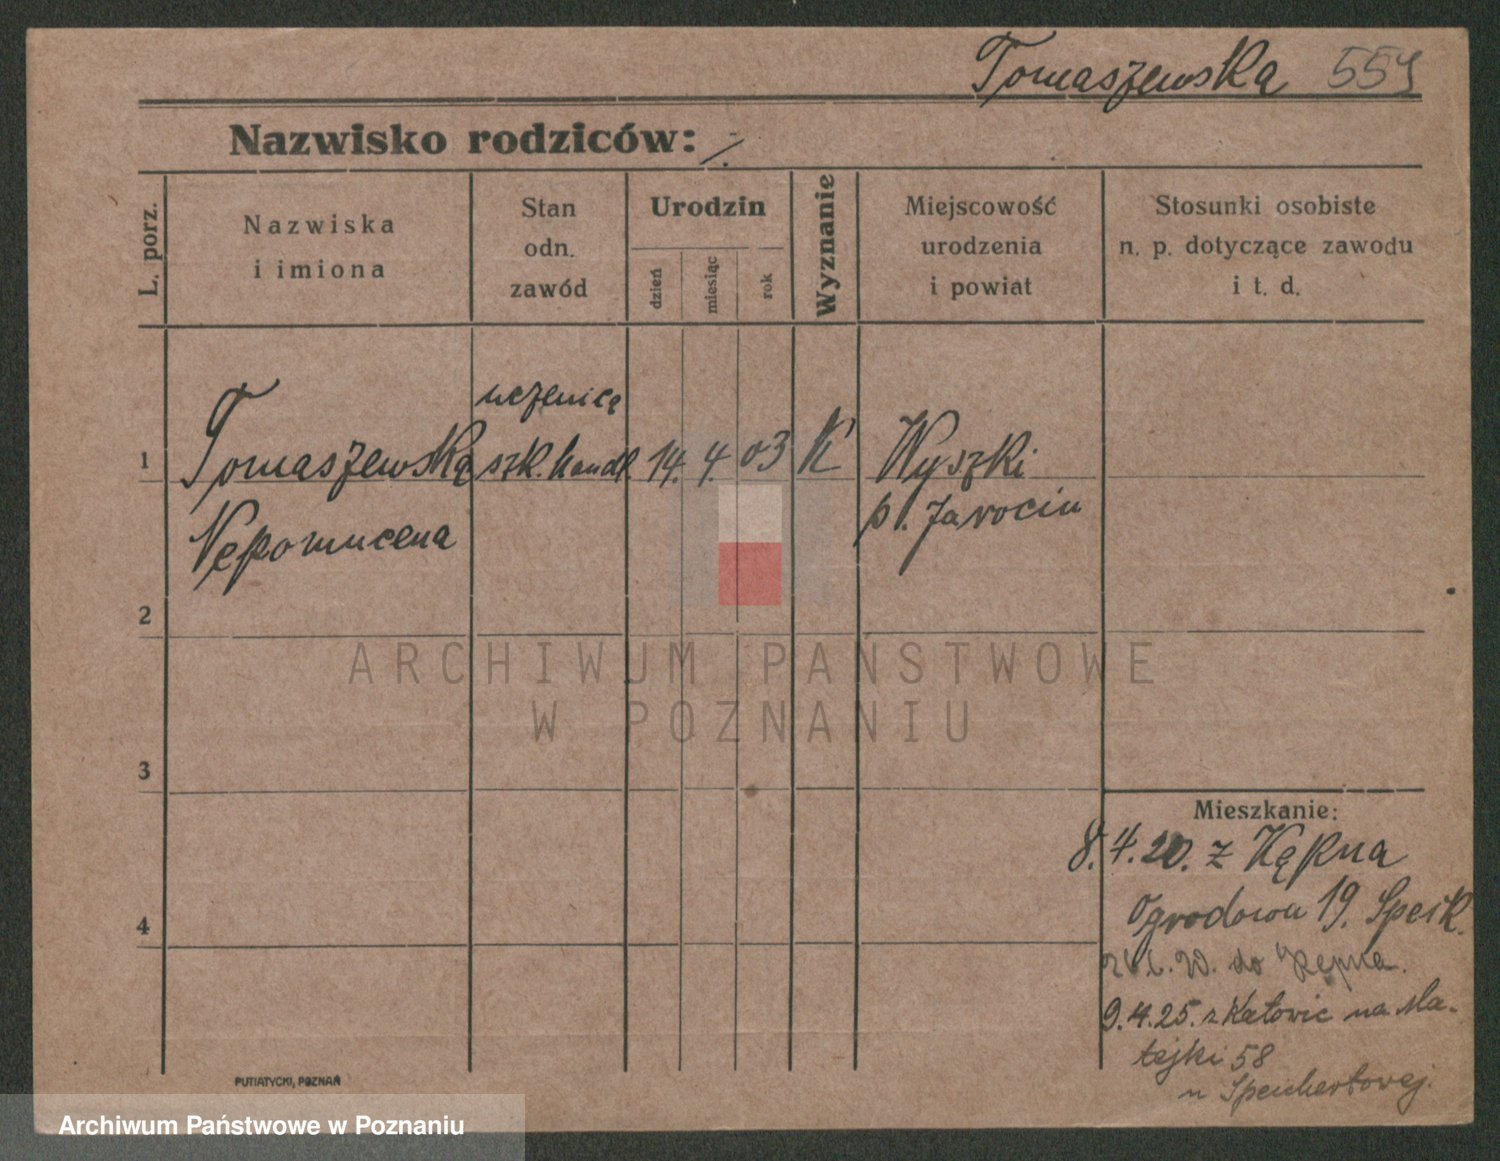 Tomaszewska 559
Nazwisko rodziców: ./.
L. porz.
Nazwiska
i imiona
Stan
odn.
zawód
Urodzin
dzień
miesiąc
rok
Wyznanie
Miejscowość
urodzenia
i powiat
Stosunki osobiste
n. p. dotyczące zawodu
i t. d.
uczenica
1 Tomaszewska szk. handl. 14. 4. 03 K Wyszki
Nepomucena p. Jarocin
2
ARCHIWUM PAŃSTWOWE
W POZNANIU
3
Mieszkanie:
8.4.20. z Kępna
4
Ogrodowa 19. Speik.
20. do Kępna.
9.4.25. z Katowic na Ma-
tejki 58
u Speichertowej.
PUTIATYCKI, POZNAŃ
Archiwum Państwowe w Poznaniu